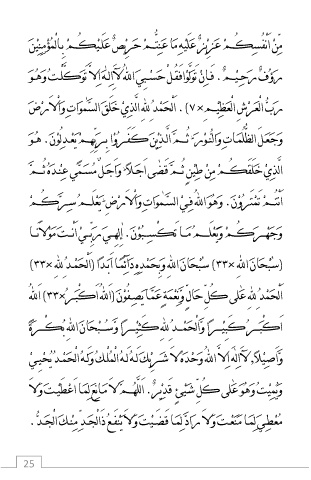 مِنْ اَنْفُسِكُمْ عَزِيْزٌ عَلَيْهِ مَا عَنِتُّمْ حَرِيْصٌ عَلَيْكُمْ بِالْمُؤْمِنِيْنَ
رَؤُفٌ رَحِيْمٌ . فَاِنْ تَوَلَّوْا فَقُلْ حَسْبِيَ اللهُ لَآاِلٰهَ اِلَّا هُوَ عَلَيْهِ تَوَكَّلْتُ وَهُوَ
رَبُّ الْعَرْشِ الْعَظِيْمِ ×٧) . اَلْحَمْدُ لِلهِ الَّذِيْ خَلَقَ السَّمٰوَاتِ وَالْاَرْضَ
وَجَعَلَ الظُّلُمَاتِ وَالنُّوْرَ ثُمَّ الَّذِيْنَ كَفَرُوْا بِرَبِّهِمْ يَعْدِلُوْنَ . هُوَ
الَّذِيْ خَلَقَكُمْ مِنْ طِيْنٍ ثُمَّ قَضٰى اَجَلًا وَاَجَلٌ مُسَمًّى عِنْدَهُ ثُمَّ
اَنْتُمْ تَمْتَرُوْنَ . وَهُوَ اللهُ فِيْ السَّمٰوَاتِ وَالْاَرْضِ يَعْلَمُ سِرَّكُمْ
وَجَهْرَكُمْ وَيَعْلَمُ مَا تَكْسِبُوْنَ . اِلٰهِيْ رَبِّيْ اَنْتَ مَوْلَانَا
(سُبْحَانَ اللهِ ×٣٣) سُبْحَانَ اللهِ وَبِحَمْدِهِ دَآئِمًا اَبَدًا (اَلْحَمْدُ لِلهِ ×٣٣)
اَلْحَمْدُ لِلهِ عَلٰى كُلِّ حَالٍ وَنِعْمَةٍ عَمَّا يَصِفُوْنَ (اَللهُ اَكْبَرُ ×٣٣) اَللهُ
اَكْبَرُ كَبِيْرًا وَالْحَمْدُ لِلهِ كَثِيْرًا وَسُبْحَانَ اللهِ بُكْرَةً
وَاَصِيْلًا، لَآاِلٰهَ اِلَّا اللهُ وَحْدَهُ لَا شَرِيْكَ لَهُ لَهُ الْمُلْكُ وَلَهُ الْحَمْدُ يُحْيِيْ
وَيُمِيْتُ وَهُوَ عَلٰى كُلِّ شَيْئٍ قَدِيْرٌ . اَللّٰهُمَّ لَا مَانِعَ لِمَا اَعْطَيْتَ وَلَا
مُعْطِيَ لِمَا مَنَعْتَ وَلَا رَادَّ لِمَا قَضَيْتَ وَلَا يَنْفَعُ ذَا الْجَدِّ مِنْكَ الْجَدُّ .
25